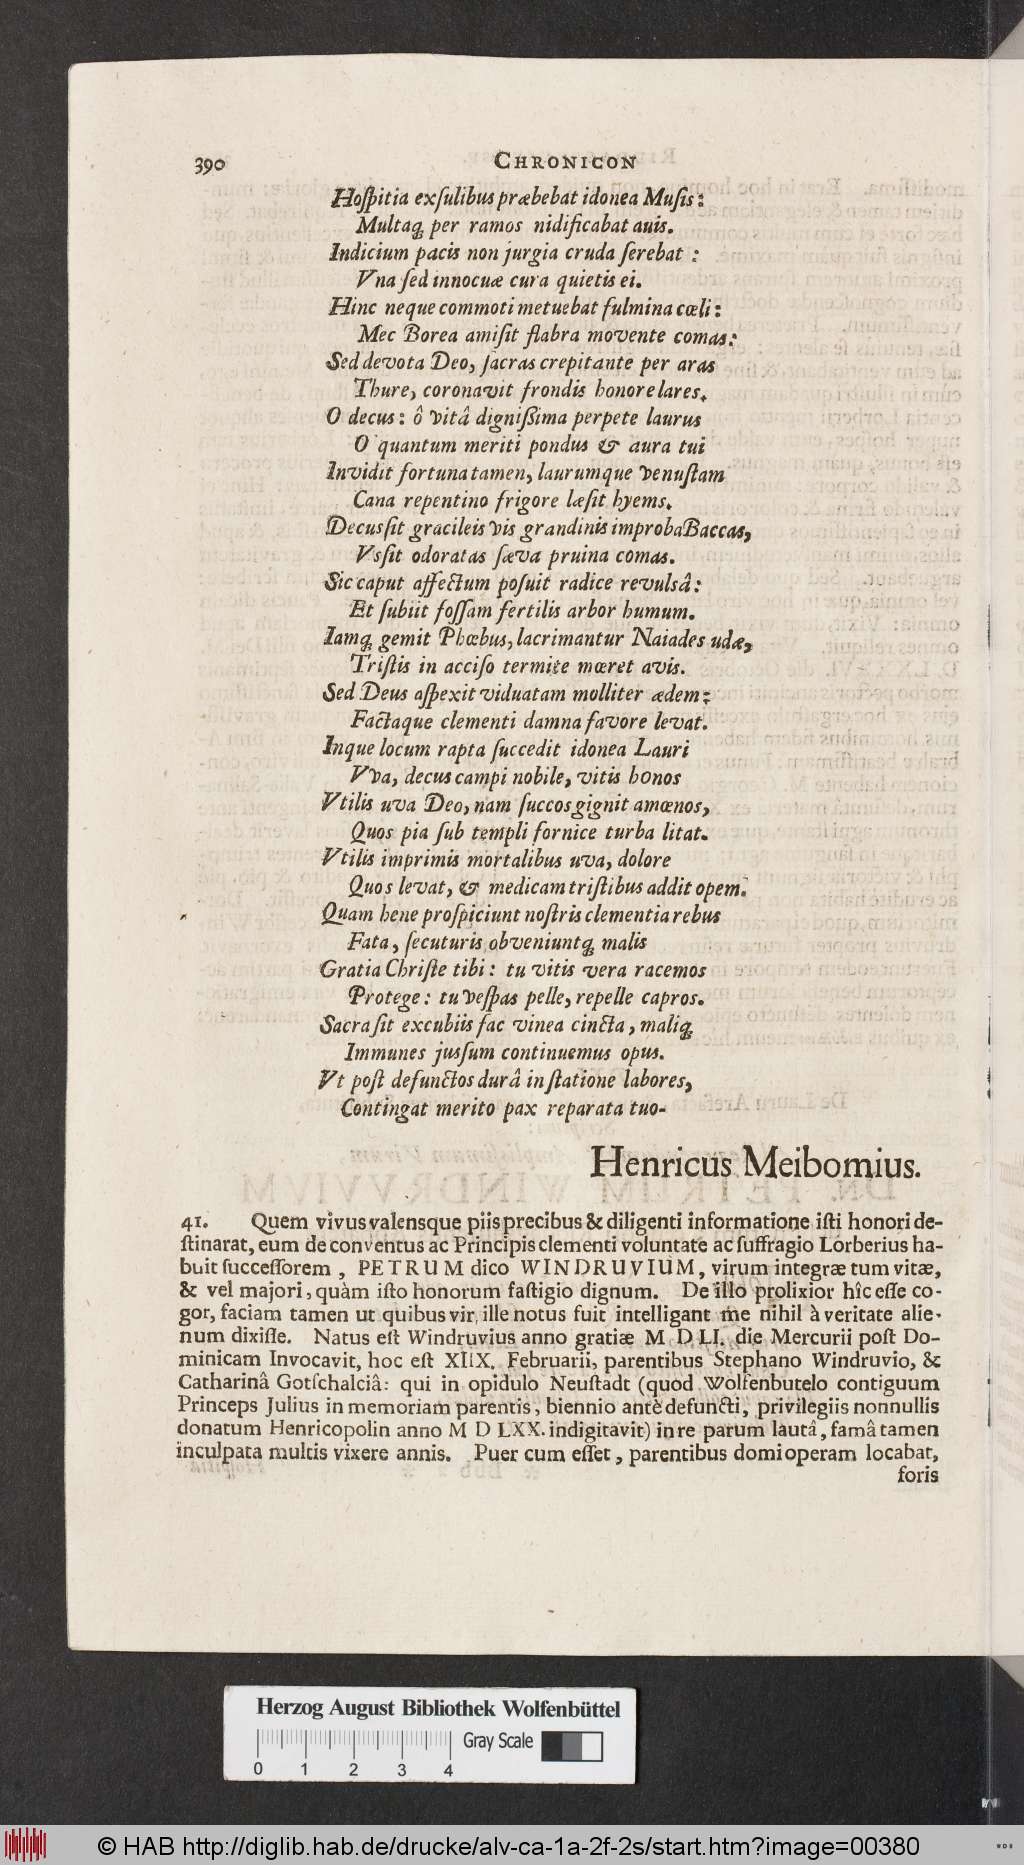 390 CHRONICON
Hoſpitia exſulibus præbebat idonea Muſis:
Multaq́; per ramos nidificabat auis.
Indicium pacis non jurgia cruda ſerebat :
Vna ſed innocuæ cura quietis ei.
Hinc neque commoti metuebat fulmina cœli:
Mec Borea amiſit flabra movente comas:
Sed devota Deo, ſacras crepitante per aras
Thure, coronavit frondis honore lares.
O decus: ô vitâ digniſſima perpete laurus
O quantum meriti pondus & aura tui
Invidit fortuna tamen, laurumque venuſtam
Cana repentino frigore læſit hyems.
Decusſit gracileis vis grandinis improba Baccas,
Vsſit odoratas ſæva pruina comas.
Sic caput affectum poſuit radice revulsâ:
Et ſubiit foſſam fertilis arbor humum.
Iamq́; gemit Phœbus, lacrimantur Naiades udæ,
Triſtis in acciſo termite mœret avis.
Sed Deus aſpexit viduatam molliter ædem:
Factaque clementi damna favore levat.
Inque locum rapta ſuccedit idonea Lauri
Vva, decus campi nobile, vitis honos
Vtilis uva Deo, nam ſuccos gignit amœnos,
Quos pia ſub templi fornice turba litat.
Vtilis imprimis mortalibus uva, dolore
Quos levat, & medicam triſtibus addit opem.
Quam bene proſpiciunt noſtris clementia rebus
Fata, ſecuturis obveniuntq́; malis
Gratia Chriſte tibi: tu vitis vera racemos
Protege: tu veſpas pelle, repelle capros.
Sacra ſit excubiis fac vinea cincta, maliq́;
Immunes jusſum continuemus opus.
Vt poſt defunctos durâ in ſtatione labores,
Contingat merito pax reparata tuo-
Henricus Meibomius.
41. Quem vivus valensque piis precibus & diligenti informatione iſti honori de-
ſtinarat, eum de conventus ac Principis clementi voluntate ac ſuffragio Lorberius ha-
buit ſucceſſorem , PETRUM dico WINDRUVIUM, virum integræ tum vitæ,
& vel majori, quàm iſto honorum faſtigio dignum. De illo prolixior hîc eſſe co-
gor, faciam tamen ut quibus vir ille notus fuit intelligant me nihil à veritate alie-
num dixiſſe. Natus eſt Windruvius anno gratiæ M D LI. die Mercurii poſt Do-
minicam Invocavit, hoc eſt XIIX. Februarii, parentibus Stephano Windruvio, &
Catharinâ Gotſchalciâ: qui in opidulo Neuſtadt (quod Wolfenbutelo contiguum
Princeps Julius in memoriam parentis, biennio antè defuncti, privilegiis nonnullis
donatum Henricopolin anno M D LXX. indigitavit) in re parum lautâ, famâ tamen
inculpata multis vixere annis. Puer cum eſſet, parentibus domi operam locabat,
foris
Herzog August Bibliothek Wolfenbüttel
Gray Scale
0 1 2 3 4
© HAB http://diglib.hab.de/drucke/alv-ca-1a-2f-2s/start.htm?image=00380